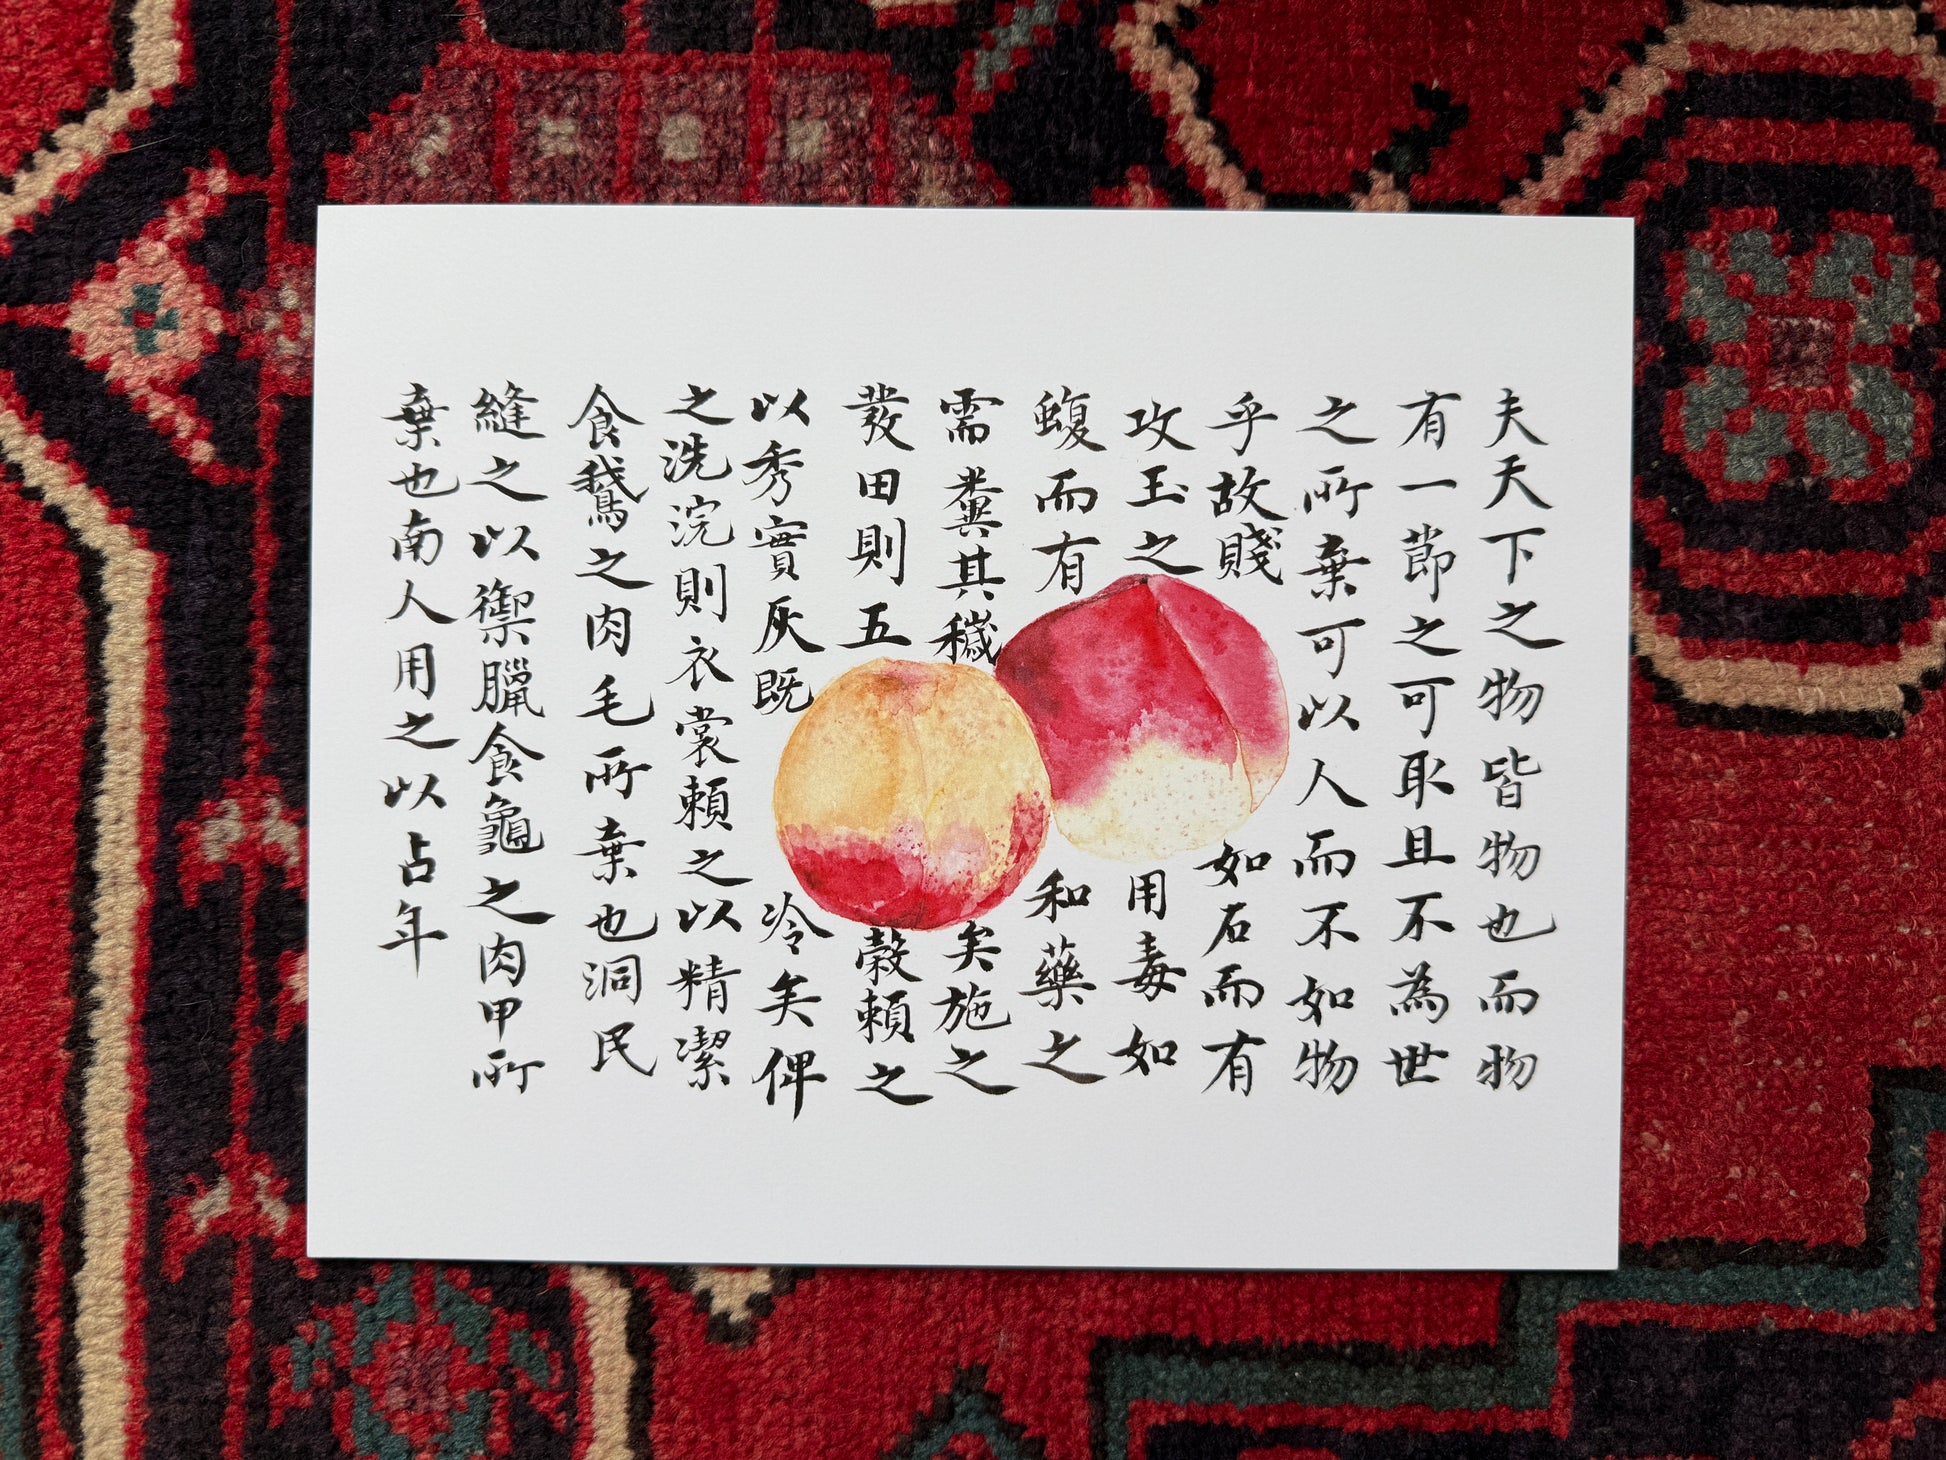 夫天下之物皆物也而物
有一節之可取且不為世
之所棄可以人而不如物
乎故賤如石而有
攻玉之用毒如
蝮而有和藥之
需糞其穢矣施之
發田則五穀賴之
以秀實灰既冷矣俾
之洗浣則衣裳賴之以精潔
食鵝之肉毛所棄也洞民
縫之以禦臘食龜之肉甲所
棄也南人用之以占年